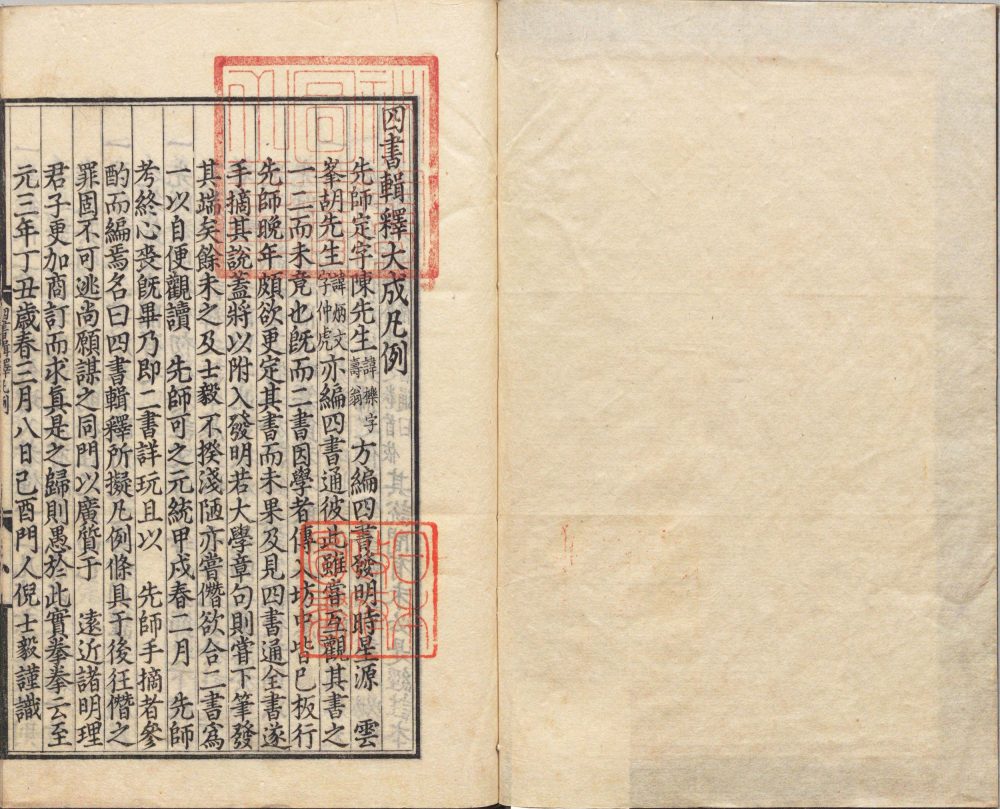 四書輯釋大成凡例
先師定宇陳先生諱櫟字壽翁方編四書發明時星源　雲
峯胡先生諱炳文字仲虎亦編四書通彼此雖嘗互觀其書之
一二而未竟也旣而二書因學者傳入坊中皆已板行
先師晚年頗欲更定其書而未果及見四書通全書遂
手摘其說蓋將以附入發明若大學章句則嘗下筆發
其端矣餘未之及士毅不揆淺陋亦嘗僭欲合二書爲
一以自便觀讀　先師可之元統甲戌春二月　先師
考終心喪旣畢乃即二書詳玩且以　先師手摘者參
酌而編焉名曰四書輯釋所擬凡例條具于後狂僭之
罪固不可逃尚願謀之同門以廣質于　遠近諸明理
君子更加商訂而求眞是之歸則愚於此實拳拳云至
元三年丁丑歲春三月八日己酉門人倪士毅謹識
四書輯釋凡例